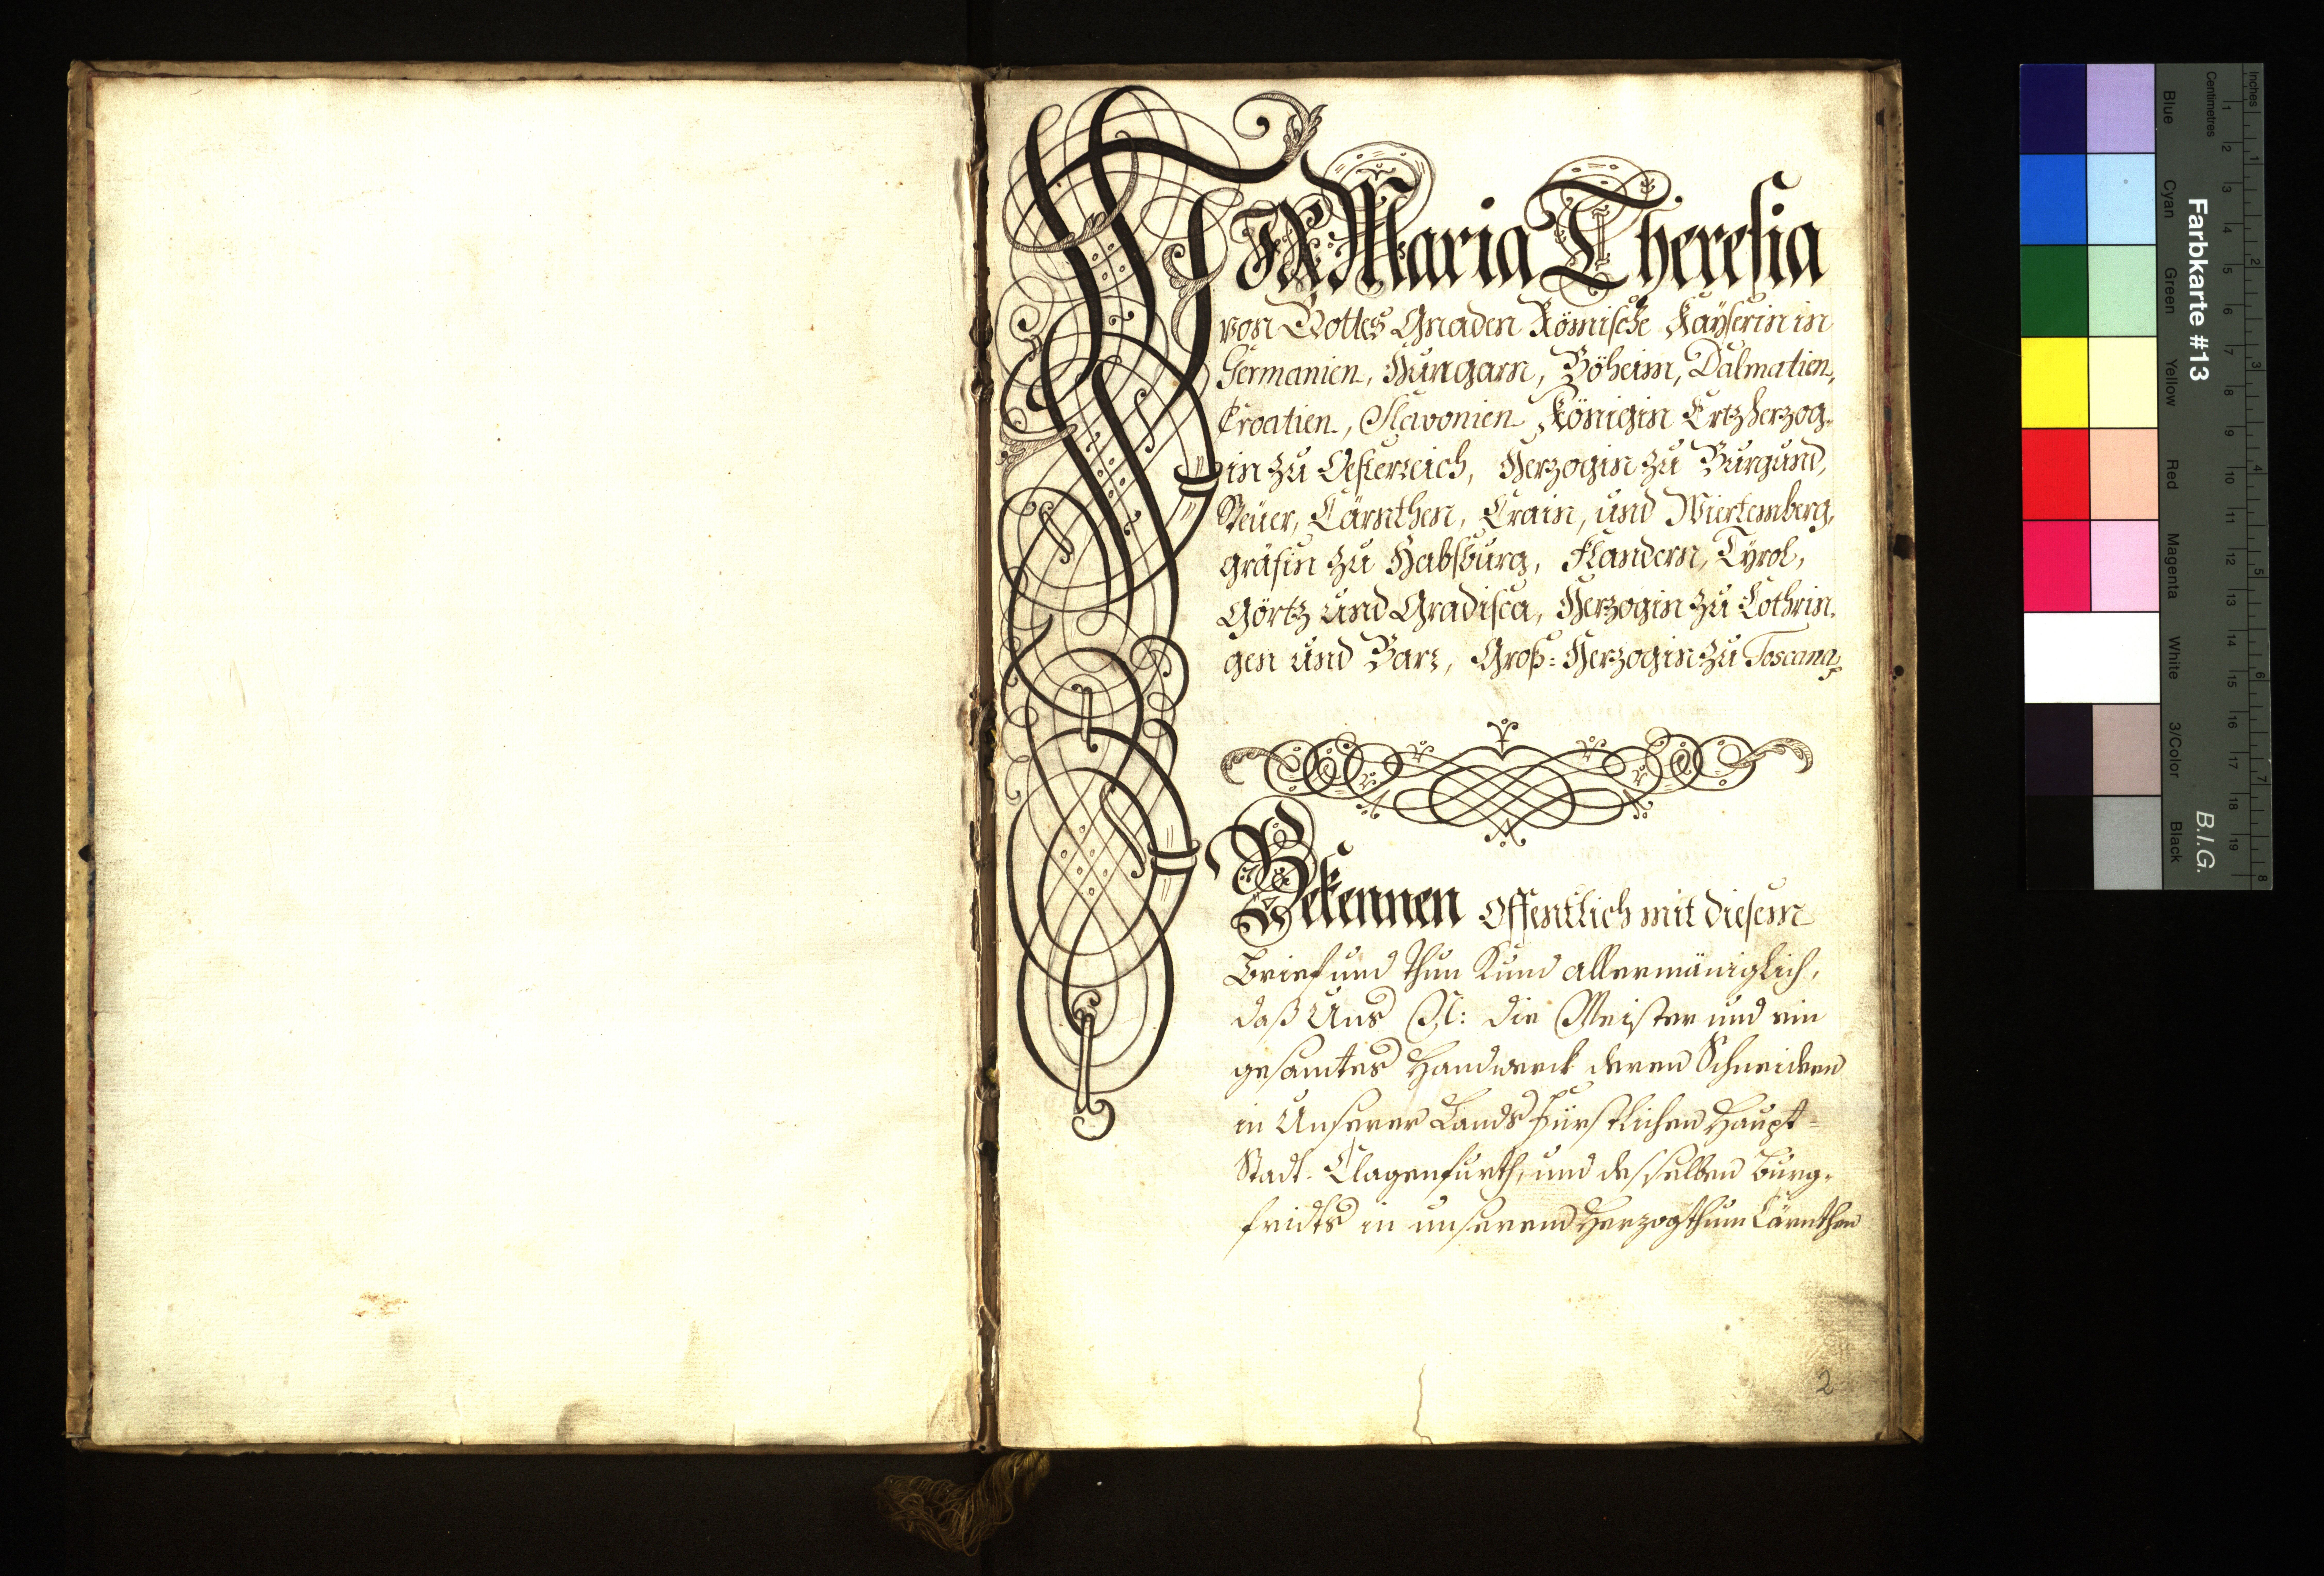 WIR Maria Theresia
von Gottes Gnaden Römische Kaÿserin in
Germanien, Hungarn, Böheim, Dalmatien,
Croatien, Slavonien Königin Ertzherzog-
in zu Oesterreich, Herzogin zu Burgund,
Steüer, Cärnthen, Crain, und Wiertemberg,
gräfin zu Habsburg, Flandern, Tÿrol,
Görtz und Gradisca, Herzogin zu Lothrin-
gen und Barr, Groß-Herzogin zu Toscana
Bekennen Offentlich mit diesem
Brief und thun Kund allermäniglich,
daß Uns N: die Meister und ein
gesamtes Handwerck deren Schneidern
in Unserer Lands Fürstlichen Haupt-
Stadt Clagenfurth, und desselben Burg-
fridts in unserem Herzogthum Cärnthen
2
Farbkarte #13
B.I.G.
Inches
Centimetres
1 2 3 4 5 6 7 8 9 10 11 12 13 14 15 16 17 18 19
1 2 3 4 5 6 7 8
Blue
Cyan
Green
Yellow
Red
Magenta
White
3/Color
Black